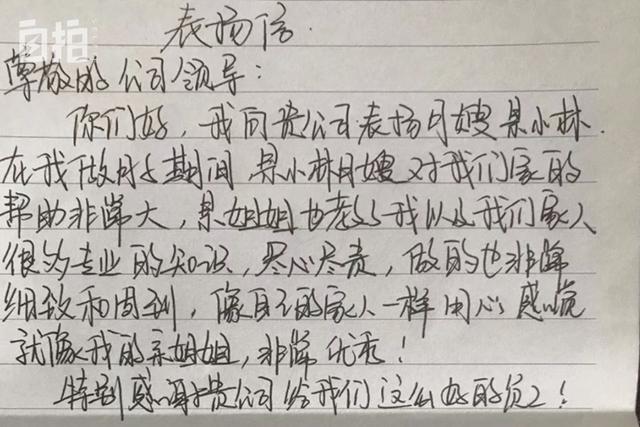 自拍
表扬信
尊敬的公司领导：
你们好，我向贵公司表扬月嫂吴小林.
在我做月子期间，吴小林月嫂对我们家的
帮助非常大，吴姐姐也教了我以及我们家人
很多专业的知识，尽心尽责，做的也非常
细致和周到，像自己的家人一样用心感觉
就像我的亲姐姐，非常优秀！
特别感谢贵公司给我们这么好的员工！